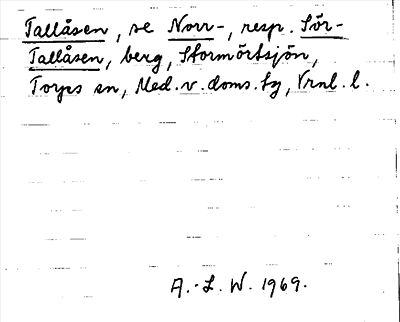 Tallåsen, se Norr-, resp. Sör-
Tallåsen, berg, Stormörtsjön,
Torps sn, Med. v. doms. tg, Vrnl. l.
A.-L. W. 1969.